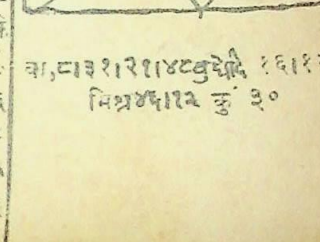 वा,८।३१।२१।४८बुधेदि १६।१
मिश्र४६।१२ कुं ३०